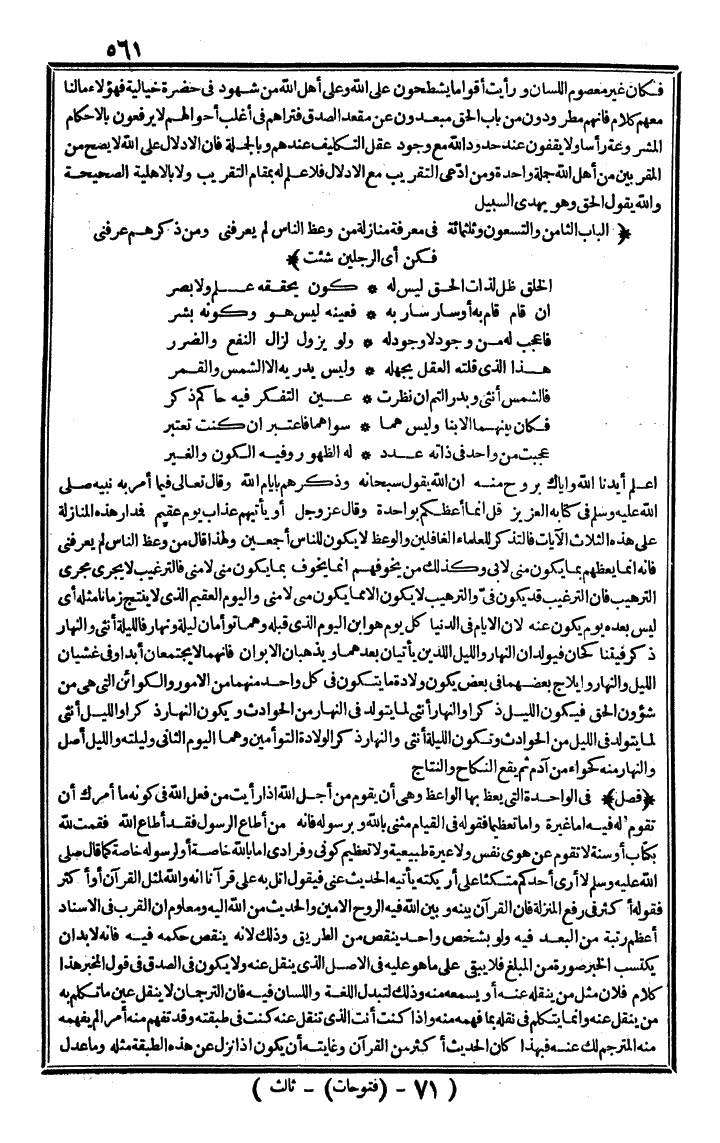 ٥٦١
فكان غير معصوم اللسان ورأيت أقواما يشطحون على الله وعلى أهل الله من شهود فى حضرة خيالية فهؤلاء مالنا
معهم كلام فانهم مطرودون من باب الحق مبعدون عن مقعد الصدق فتراهم فى أغلب أحوالهم لا يرفعون بالاحكام
المشروعة رأسا ولا يقفون عند حدود الله مع وجود عقل التكليف عندهم وبالجملة فان الادلال على الله لا يصح من
المقربين من أهل الله جملة واحدة ومن ادّعى التقريب مع الادلال فلا علم له بمقام التقريب ولا بالاهلية الصحيحة
والله يقول الحق وهو يهدى السبيل
﴿ الباب الثامن والتسعون وثلثمائة فى معرفة منازلة من وعظ الناس لم يعرفنى ومن ذكرهم عرفنى
فكن أى الرجلين شئت ﴾
الخلق ظل لذات الحق ليس له * كون يحققه علم ولا بصر
ان قام قام به أو سار سار به * فعينه ليس هو وكونه بشر
فاعجب له من وجود لا وجود له * ولو يزول لزال النفع والضرر
هذا الذى قلته العقل يجهله * وليس يدر به الا الشمس والقمر
فالشمس أنثى وبدر التم ان نظرت * عين التفكر فيه حاكم ذكر
فكان بينهما الابنا وليس هما * سواهما فاعتبر ان كنت تعتبر
عجبت من واحد فى ذاته عدد * له الظهور وفيه الكون والغير
اعلم أيدنا الله واياك بروح منه ان الله يقول سبحانه وذكرهم بايام الله وقال تعالى فيما أمر به نبيه صلى
الله عليه وسلم فى كتابه العزيز قل انما أعظكم بواحدة وقال عز وجل أو يأتيهم عذاب يوم عقيم فدار هذه المنازلة
على هذه الثلاث الآيات فالتذكر للعلماء الغافلين والوعظ لا يكون للناس أجمعين ولهذا قال من وعظ الناس لم يعرفنى
فانه انما يعظهم بما يكون منى لا بى وكذلك من يخوفهم انما يخوف بما يكون منى لا منى فالترغيب لا يجرى مجرى
الترهيب فان الترغيب قد يكون فىّ والترهيب لا يكون الا مما يكون منى لا منى واليوم العقيم الذى لا ينتج زمانا مثله أى
ليس بعده يوم يكون عنه لان الايام فى الدنيا كل يوم هو ابن اليوم الذى قبله وهما توأمان ليلة ونهار فالليلة أنثى والنهار
ذكر فيتنا كحان فيولدان النهار والليل اللذين يأتيان بعدهما ويذهبان الابوان فانهما لا يجتمعان أبدا وفى غشيان
الليل والنهار وايلاج بعضهما فى بعض يكون ولادة ما يتكون فى كل واحد منهما من الامور والكوائن التى هى من
شؤون الحق فيكون الليل ذكرا والنهار أنثى لما يتولد فى النهار من الحوادث ويكون النهار ذكرا والليل أنثى
لما يتولد فى الليل من الحوادث وتكون الليلة أنثى والنهار ذكرا لولادة التوأمين وهما اليوم الثانى وليلته والليل أصل
والنهار منه كحواء من آدم ثم يقع النكاح والنتاج
﴿فصل﴾ فى الواحدة التى يعظ بها الواعظ وهى أن يقوم من أجل الله اذا رأيت من فعل الله فى كونه ما أمرك أن
تقوم له فيه اما غيرة واما تعظيما فقوله فى القيام مثنى بالله وبرسوله فانه من أطاع الرسول فقد أطاع الله فقمت لله
بكتاب أو سنة لا تقوم عن هوى نفس ولا غيرة طبيعية ولا تعظيم كونى وفرادى اما بالله خاصة أو لرسوله خاصة كما قال صلى
الله عليه وسلم لا أرى أحدكم متكئا على أريكته يأتيه الحديث عنى فيقول اتل به على قرآنا انه والله لمثل القرآن أو أكثر
فقوله أكثر فى رفع المنزلة فان القرآن بينه وبين الله فيه الروح الامين والحديث من الله اليه ومعلوم ان القرب فى الاسناد
أعظم رتبة من البعد فيه ولو بشخص واحد ينقص من الطريق وذلك لانه ينقص حكمه فيه فانه لا بد ان
يكتسب الخبر صورة من المبلغ فلا يبقى على ما هو عليه فى الاصل الذى ينقل عنه ولا يكون فى الصدق فى قول المخبر هذا
كلام فلان مثل من ينقله عنه أو يسمعه منه وذلك لتبدل اللغة واللسان فيه فان الترجمان لا ينقل عين ما تكلم به
من ينقل عنه وانما يتكلم فى نقله بما فهمه منه واذا كنت أنت الذى تنقل عنه كنت فى طبقته وقد تفهم منه أمرا لم يفهمه
منه المترجم لك عنه فبهذا كان الحديث أكثر من القرآن وغايته أن يكون اذا نزل عن هذه الطبقة مثله وما عدل
( ٧١ - (فتوحات) - ثالث )